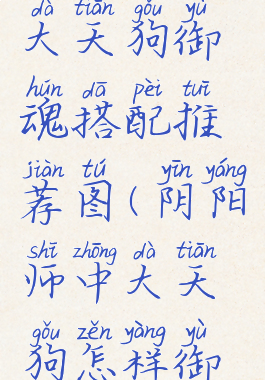 dà tiān gǒu yù
大天狗御
hún dā pèi tuī
魂搭配推
jiàn tú yīn yáng
荐图(阴阳
shī zhōng dà tiān
师中大天
gǒu zěn yàng yù
狗怎样御